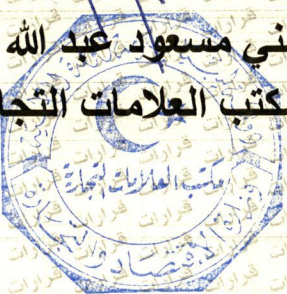 ني مسعود عبد الله
كتب العلامات التجا
مكتب العلامات التجارية
وزارة الاقتصاد والتجارة
قرارات قرارات قرارات